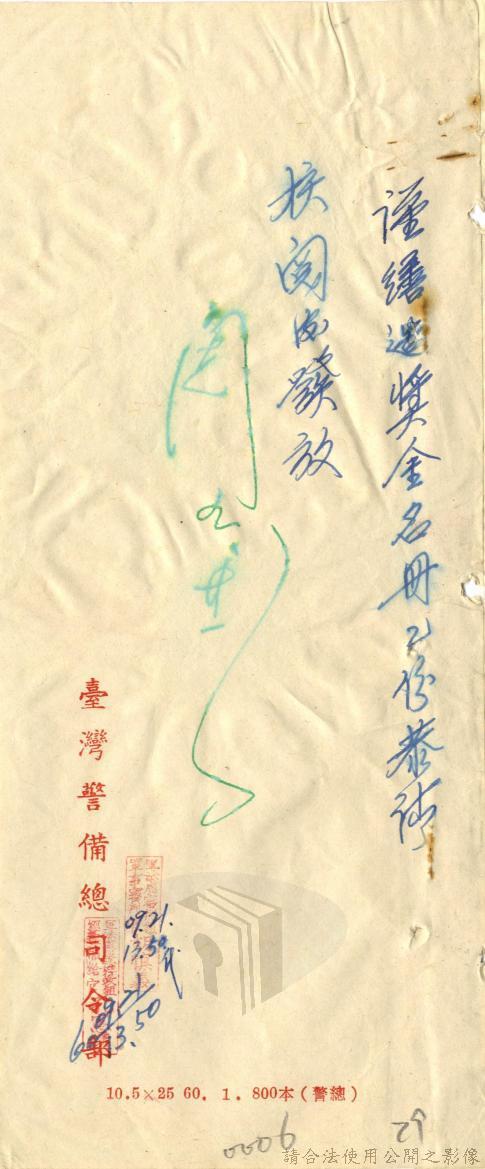 謹繕造獎金名冊乙份恭請
核閱後發放
閱
九 廿一
臺灣警備總司令部
09.21.
13.50
09.21
13.50
10.5×25 60. 1. 800本(警總)
0006
29
請合法使用公開之影像